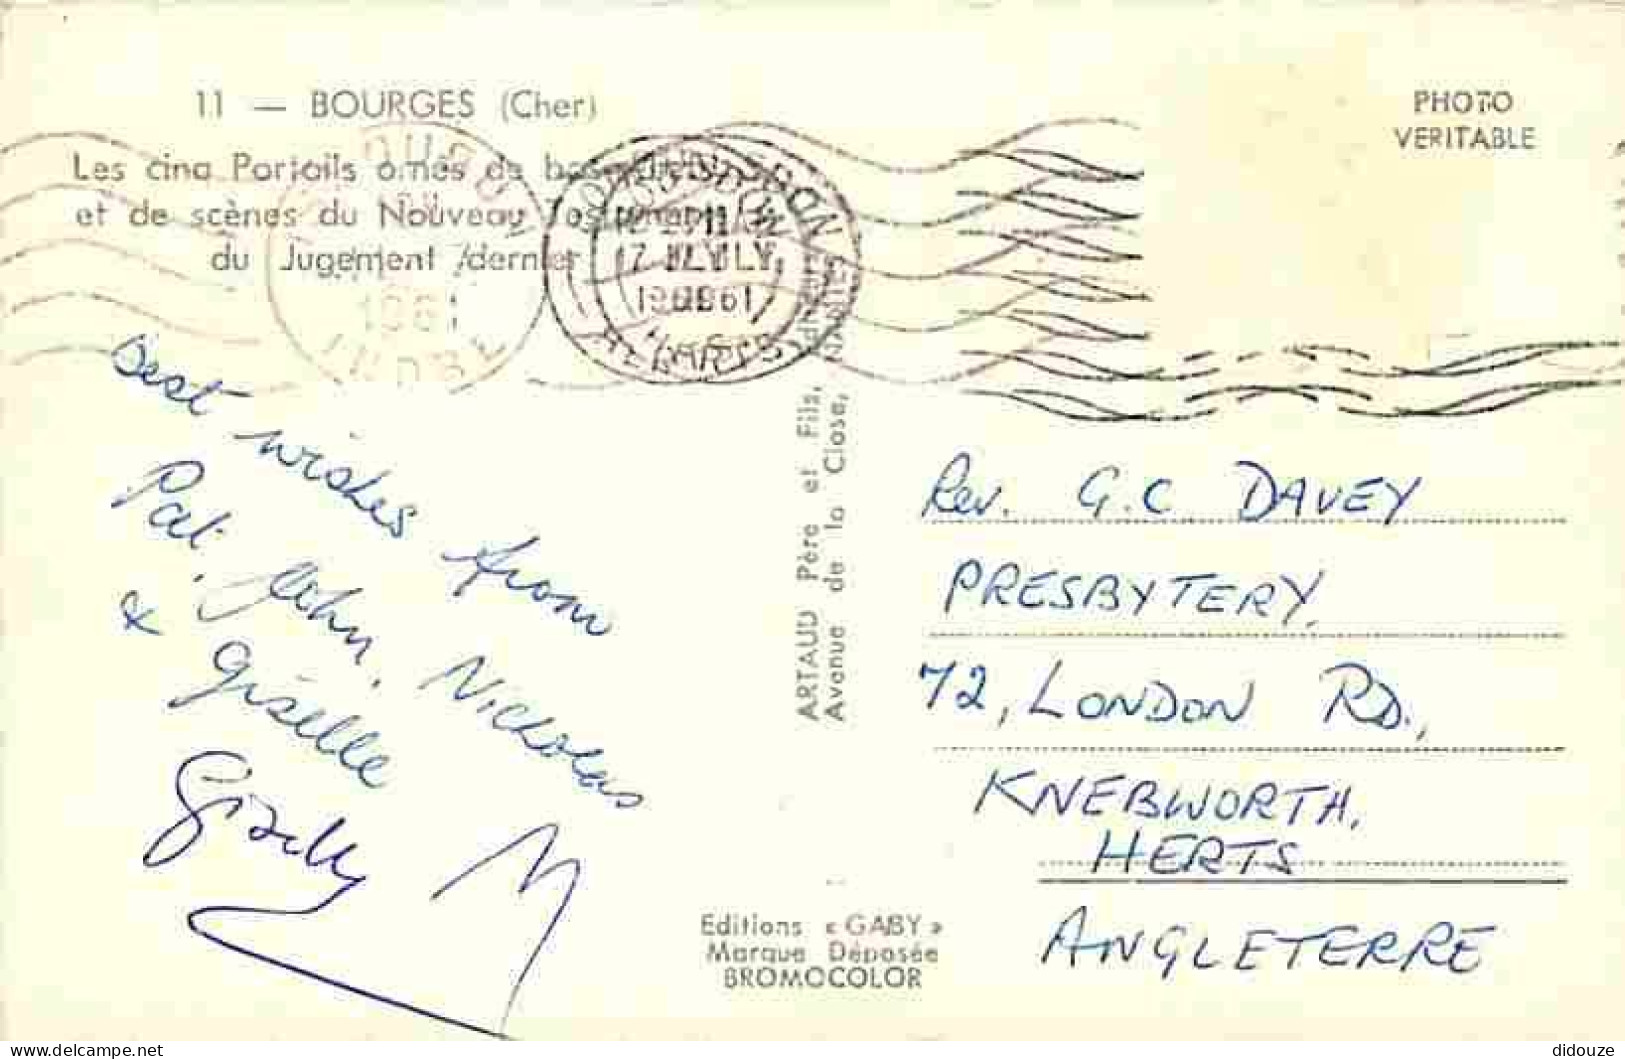 11 — BOURGES (Cher)
Les cinq Portails ornés de bas-reliefs
et de scènes du Nouveau Testament
du Jugement dernier
PHOTO
VERITABLE
17 JLY
1961
INDRE
Best wishes from
Pat, John, Nicholas
& Giselle
Giselle M
ARTAUD Père et Fils,
Avenue de la Close, NANTES
Editions « GABY »
Marque Déposée
BROMOCOLOR
Rev. G.C. DAVEY
PRESBYTERY,
72, LONDON RD.,
KNEBWORTH,
HERTS
ANGLETERRE
https://www.delcampe.net
didouze